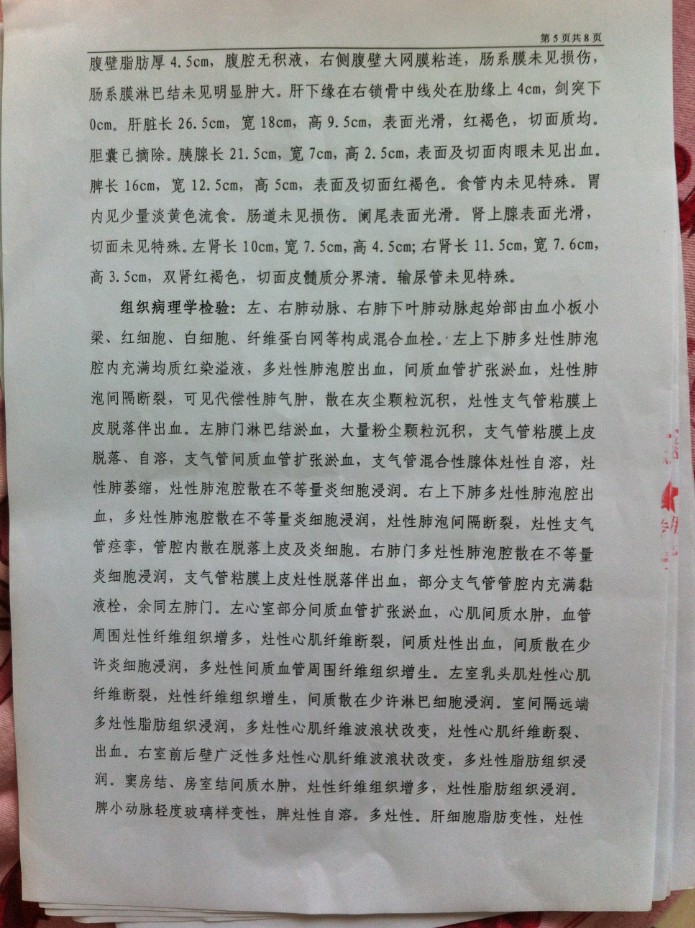 第5页共8页
腹壁脂肪厚4.5cm，腹腔无积液，右侧腹壁大网膜粘连，肠系膜未见损伤，
肠系膜淋巴结未见明显肿大。肝下缘在右锁骨中线处在肋缘上4cm，剑突下
0cm。肝脏长26.5cm，宽18cm，高9.5cm，表面光滑，红褐色，切面质均。
胆囊已摘除。胰腺长21.5cm，宽7cm，高2.5cm，表面及切面肉眼未见出血。
脾长16cm，宽12.5cm，高5cm，表面及切面红褐色。食管内未见特殊。胃
内见少量淡黄色流食。肠道未见损伤。阑尾表面光滑。肾上腺表面光滑，
切面未见特殊。左肾长10cm，宽7.5cm，高4.5cm；右肾长11.5cm，宽7.6cm，
高3.5cm，双肾红褐色，切面皮髓质分界清。输尿管未见特殊。
组织病理学检验：左、右肺动脉、右肺下叶肺动脉起始部由血小板小
梁、红细胞、白细胞、纤维蛋白网等构成混合血栓。左上下肺多灶性肺泡
腔内充满均质红染溢液，多灶性肺泡腔出血，间质血管扩张淤血，灶性肺
泡间隔断裂，可见代偿性肺气肿，散在灰尘颗粒沉积，灶性支气管粘膜上
皮脱落伴出血。左肺门淋巴结淤血，大量粉尘颗粒沉积，支气管粘膜上皮
脱落、自溶，支气管间质血管扩张淤血，支气管混合性腺体灶性自溶，灶
性肺萎缩，灶性肺泡腔散在不等量炎细胞浸润。右上下肺多灶性肺泡腔出
血，多灶性肺泡腔散在不等量炎细胞浸润，灶性肺泡间隔断裂，灶性支气
管痉挛，管腔内散在脱落上皮及炎细胞。右肺门多灶性肺泡腔散在不等量
炎细胞浸润，支气管粘膜上皮灶性脱落伴出血，部分支气管管腔内充满黏
液栓，余同左肺门。左心室部分间质血管扩张淤血，心肌间质水肿，血管
周围灶性纤维组织增多，灶性心肌纤维断裂，间质灶性出血，间质散在少
许炎细胞浸润，多灶性间质血管周围纤维组织增生。左室乳头肌灶性心肌
纤维断裂，灶性纤维组织增生，间质散在少许淋巴细胞浸润。室间隔远端
多灶性脂肪组织浸润，多灶性心肌纤维波浪状改变，灶性心肌纤维断裂、
出血。右室前后壁广泛性多灶性心肌纤维波浪状改变，多灶性脂肪组织浸
润。窦房结、房室结间质水肿，灶性纤维组织增多，灶性脂肪组织浸润。
脾小动脉轻度玻璃样变性，脾灶性自溶。多灶性。肝细胞脂肪变性，灶性